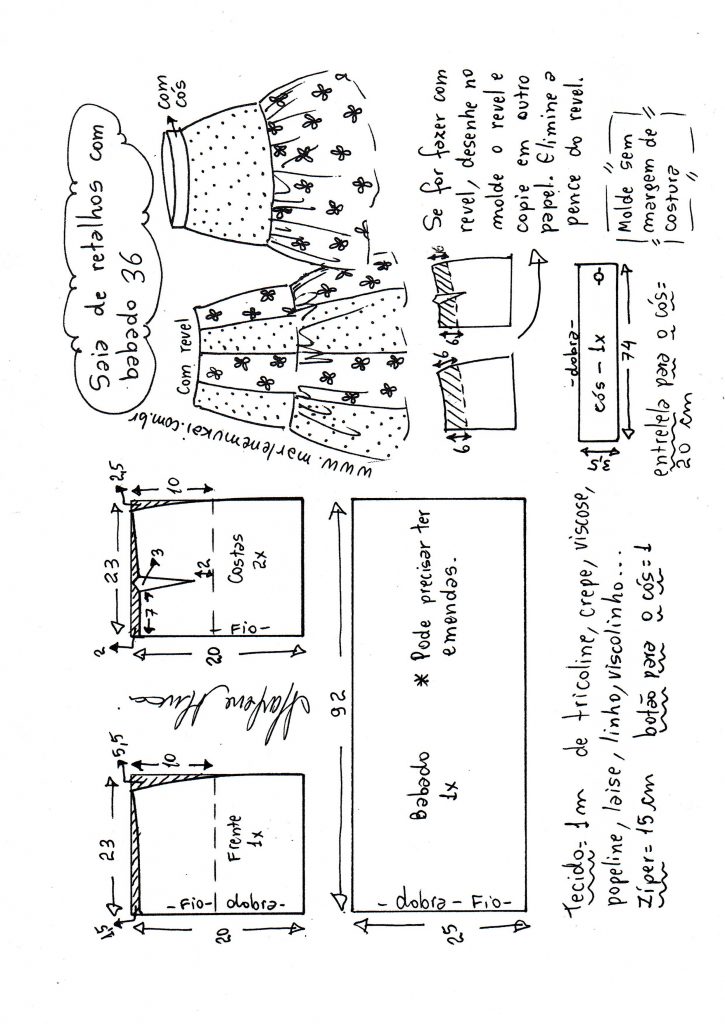 Saia de retalhos com
babado 36
com
cós
com revel
www.marlenemukai.com.br
Se for fazer com
revel, desenhe no
molde o revel e
copie em outro
papel. Elimine a
pence do revel.
6
6
6
6
Molde sem
margem de
costura
-dobra-
cós - 1x
74
entretela para o cós=
20 cm
23
5,5
1,5
10
20
Frente
1x
- Fio -
dobra-
23
2,5
2
10
7
3
12
20
Costas
2x
- Fio -
92
25
Babado
1x
* Pode precisar ter
emendas.
- dobra - Fio -
Tecido= 1m de tricoline, crepe, viscose,
popeline, laise, linho, viscolinho...
Zíper= 15 cm botão para o cós=1